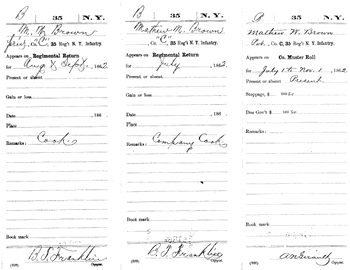 B 35 N.Y.
M. W. Brown
Priv, Co. "C", 35 Reg't N. Y. Infantry.
Appears on Regimental Return
for Aug & Sept, 1862.
Present or absent
Gain or loss
Date 186
Place
Remarks: Cook
Book mark
B. S. Franklin
(838) Copyist.
B 35 N.Y.
Mathew M. Brown
Co. "C" 35 Reg't N. Y. Infantry.
Appears on Regimental Return
for July, 1862.
Present or absent
Gain or loss
Date 186
Place
Remarks: Company Cook
Book mark:
B. S. Franklin
Copyist.
B 35 N.Y.
Mathew W. Brown
Co. C, 35 Reg't N. Y. Infantry.
Appears on Co. Muster Roll
for July to Nov 1, 1862.
Present or absent Present
Stoppage, $ 100 for
Due Gov't $ 100 for
Remarks:
Book mark:
Copyist.